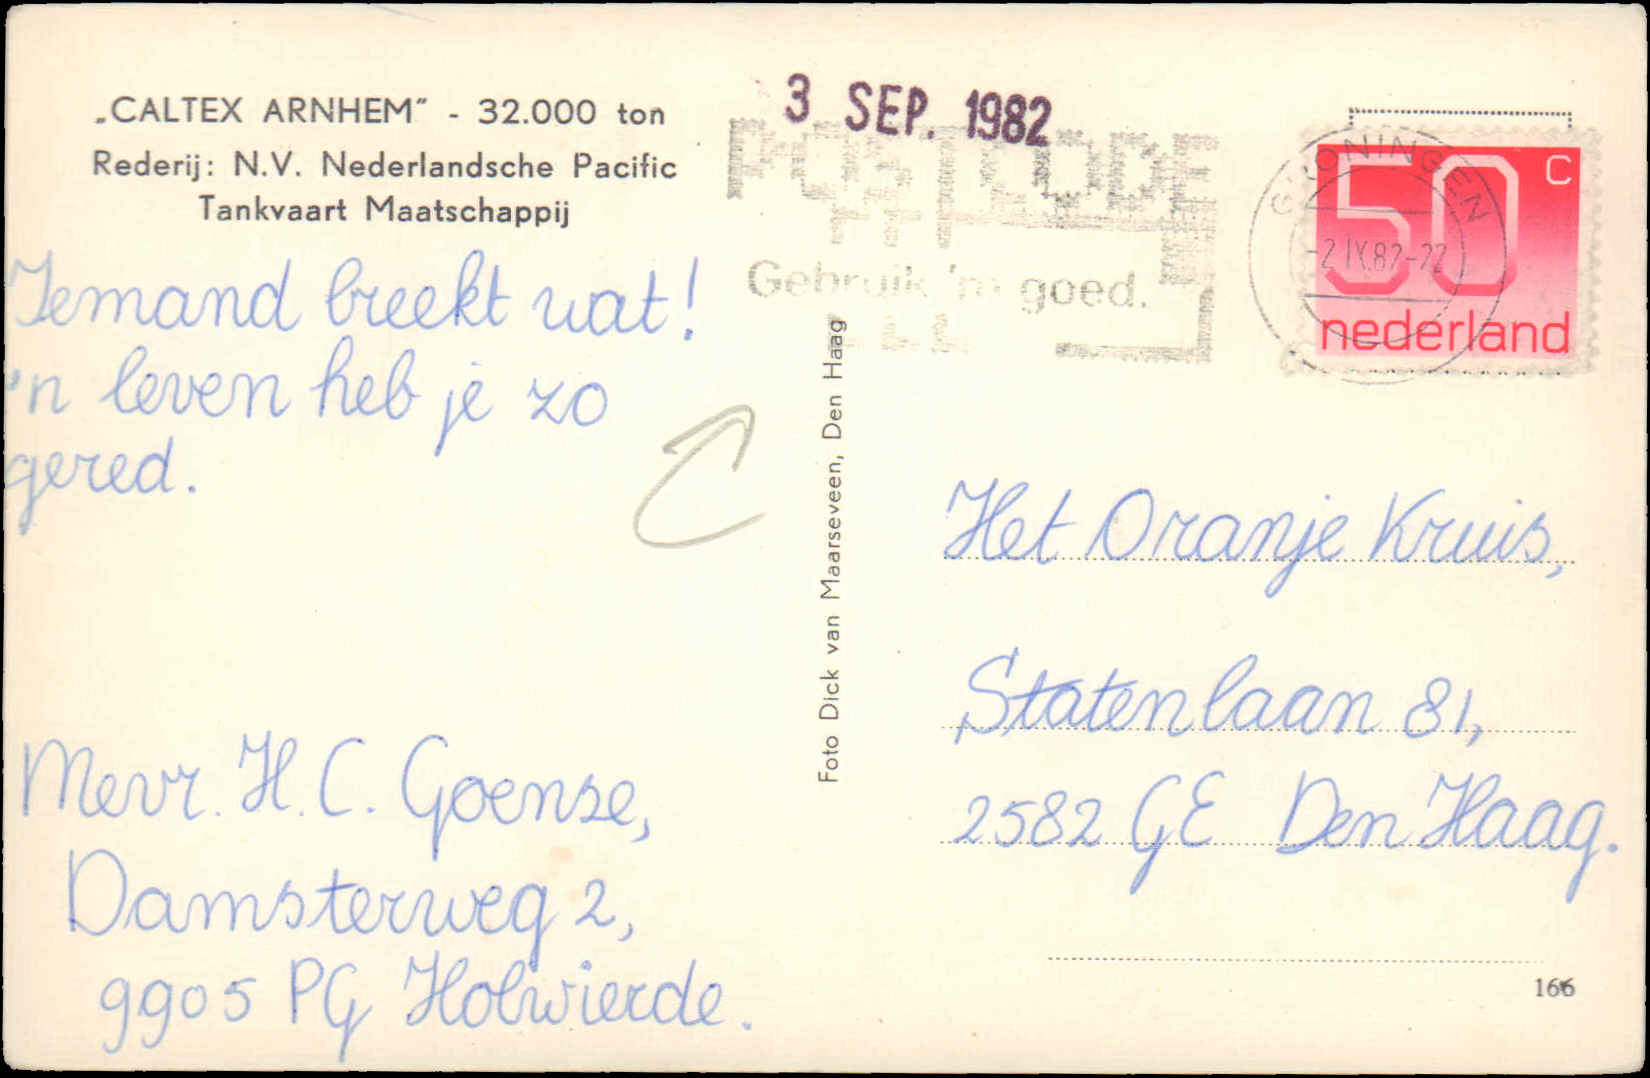 „CALTEX ARNHEM" - 32.000 ton
Rederij: N.V. Nederlandsche Pacific
Tankvaart Maatschappij
Iemand breekt wat!
'n leven heb je zo
gered.
Mevr. H. C. Goense,
Damsterweg 2,
9905 PG Holwierde.
C
Foto Dick van Maarseveen, Den Haag
3 SEP. 1982
POSTCODE
Gebruik 'm goed.
GRONINGEN
-2.IX.82-22
50 C
nederland
Het Oranje Kruis,
Statenlaan 81,
2582 GE Den Haag.
166